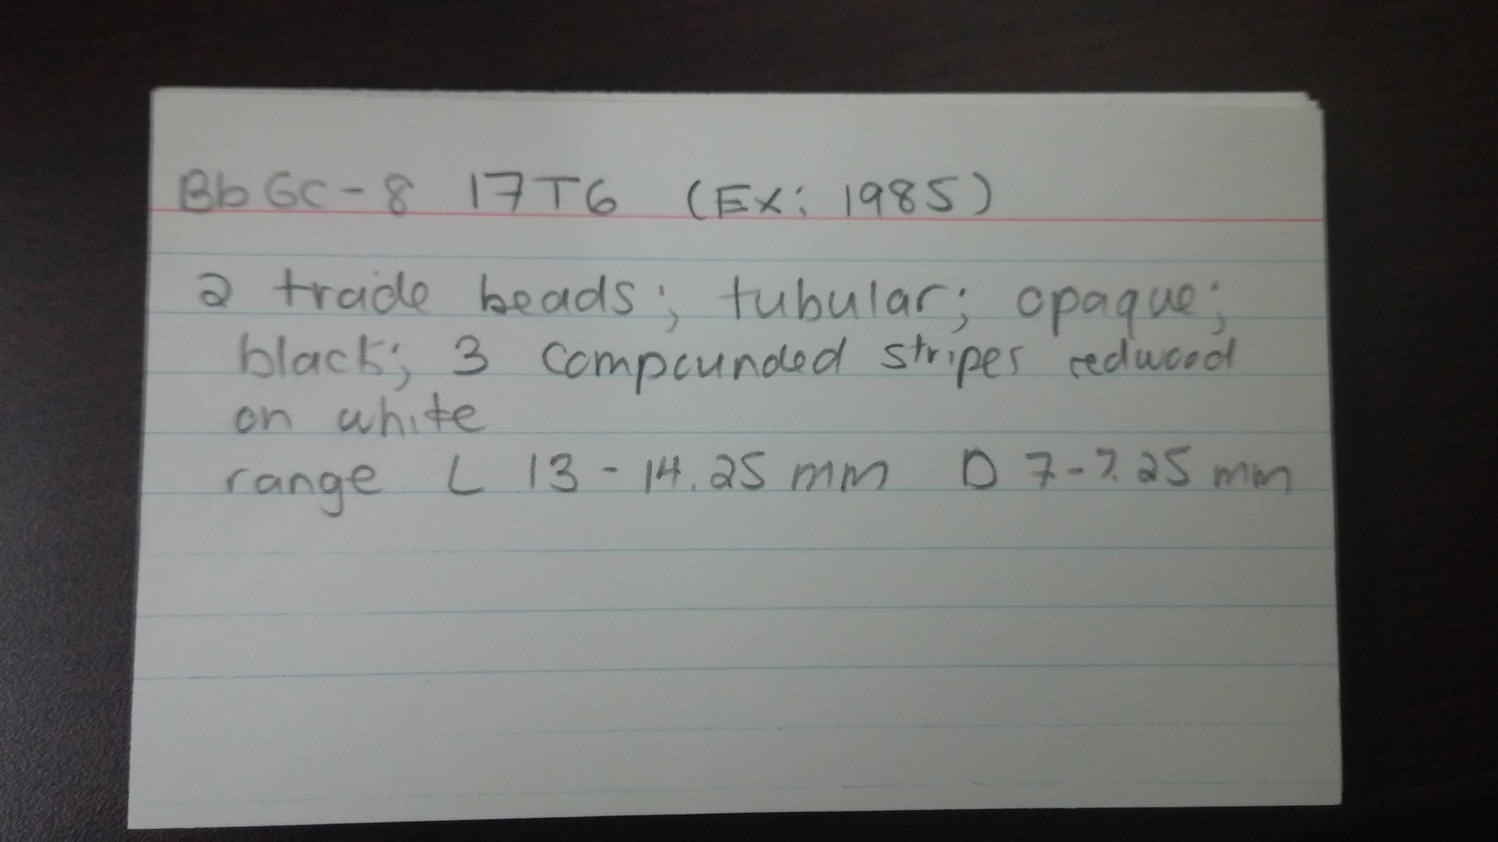 BbGc-8 17T6 (Ex: 1985)
2 trade beads; tubular; opaque;
black; 3 compounded stripes redwood
on white
range L 13-14.25mm D 7-7.25mm